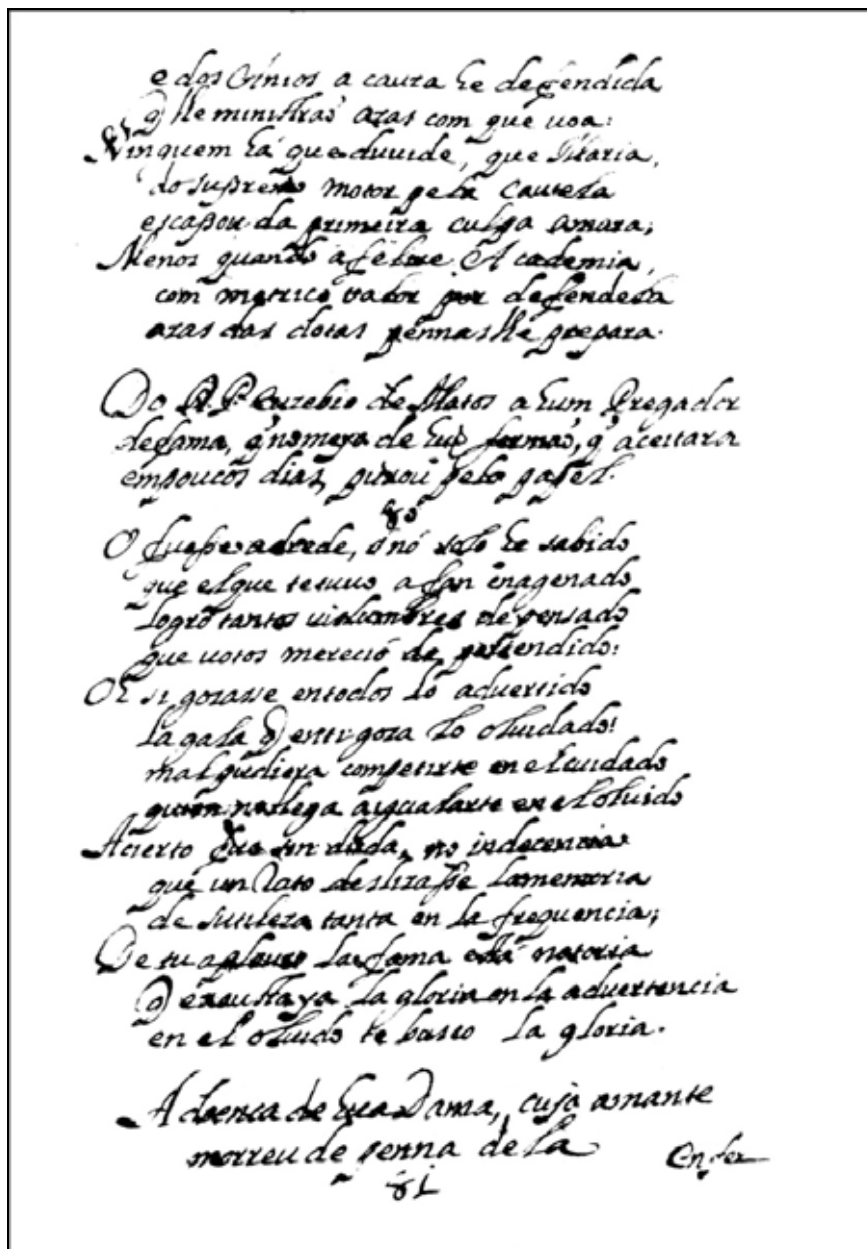 e dos Cínios a cauza he defendida
q̃ lhe ministraõ azas com que uoa:
Ninguem há que duuide, que Maria,
do supremo motor pela cautela
escapou da primeira culpa amara;
Menos quando a félice Academia,
com metrico valor por defendela
azas das doutas pennas lhe prepara.
Do R. P.e Euzebio de Mattos a hum Pregador
de fama, q̃ no meyo de hũ sermaõ, q̃ aceitara
em poucos dias, puxou pelo papel.
80
O fuesse adrede, ó nó solo he sabido
que el que te tuuo a fan enagenado
logró tantos uislumbres de pensado
que uotos mereció de pretendido:
Oh si gozasse en todos lo aduertido
la gala q̃ en ti goza lo oluidado!
mal pudiera competirte en el cuidado
quien no llega a igualarte en el oluido
Acierto fue sin duda, no indecencia
que un rato deslizasse la memoria
de sutileza tanta en la frequencia;
De tu aplauso la fama está notoria
q̃ exausta ya la gloria en la aduertencia
en el oluido te busco la gloria.
A doença de hũa Dama, cujo amante
morreu de penna dela
81
Enfer